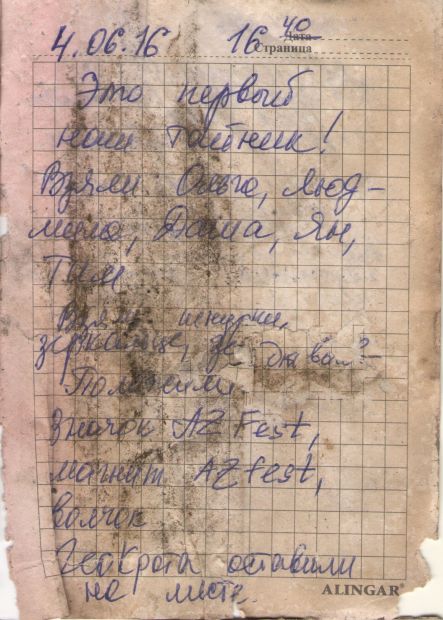 Дата
4.06.16 16 40
Страница
Это первый
наш тайник!
Взяли Ольга, Люд-
мила, Даша, Ян,
Тим
Взяли шнурки,
зеркальце,
Положили
значок AZ Fest,
магнит AZ fest,
волчок
Гейкрота оставили
на месте.
ALINGAR